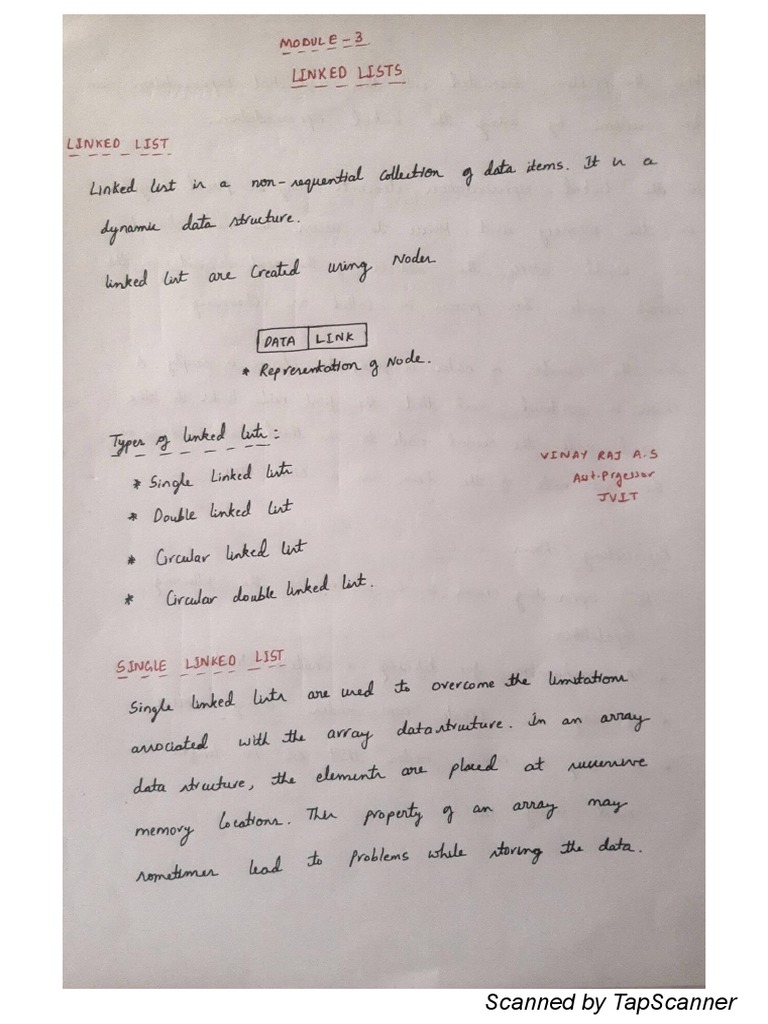 MODULE-3
LINKED LISTS
LINKED LIST
Linked list is a non-sequential collection of data items. It is a
dynamic data structure.
linked list are Created using Nodes
DATA LINK
* Representation of Node.
Types of linked lists:
* Single Linked lists
* Double linked list
* Circular linked list
* Circular double linked list.
VINAY RAJ A.S
Asst. Professor
JVIT
SINGLE LINKED LIST
Single linked lists are used to overcome the limitations
associated with the array data structure. In an array
data structure, the elements are placed at successive
memory locations. This property of an array may
sometimes lead to Problems while storing the data.
Scanned by TapScanner